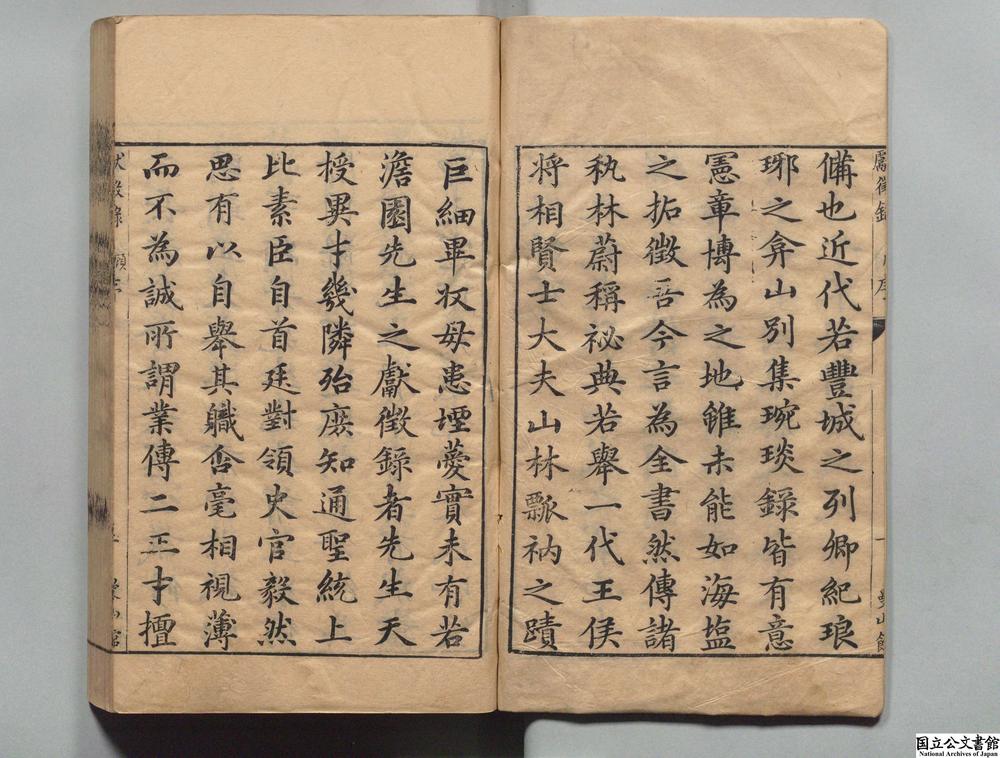 備也近代若豐城之列卿紀琅
琊之弇山別集琬琰錄皆有意
憲章博為之地雖未能如海塩
之拓徵吾今言為全書然傳諸
秇林蔚稱祕典若舉一代王侯
将相賢士大夫山林瓢衲之蹟
巨細畢收毋患堙薆實未有若
澹園先生之獻徵録者先生天
授異才幾隣殆庶知通聖統上
比素臣自首廷對領史官毅然
思有以自舉其職含毫相視薄
而不為誠所謂業傳二三才擅
獻徵錄
序
曼山館
国立公文書館
National Archives of Japan